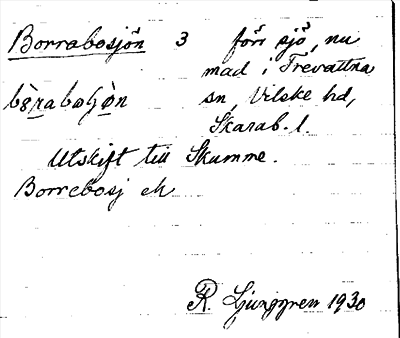 Borrabosjön 3 förr sjö, nu
mad i Trevattna
sn, Vilske hd,
Skarab. l.
Utskift till Skumme.
Borrebosj ek
R. Ljunggren 1930